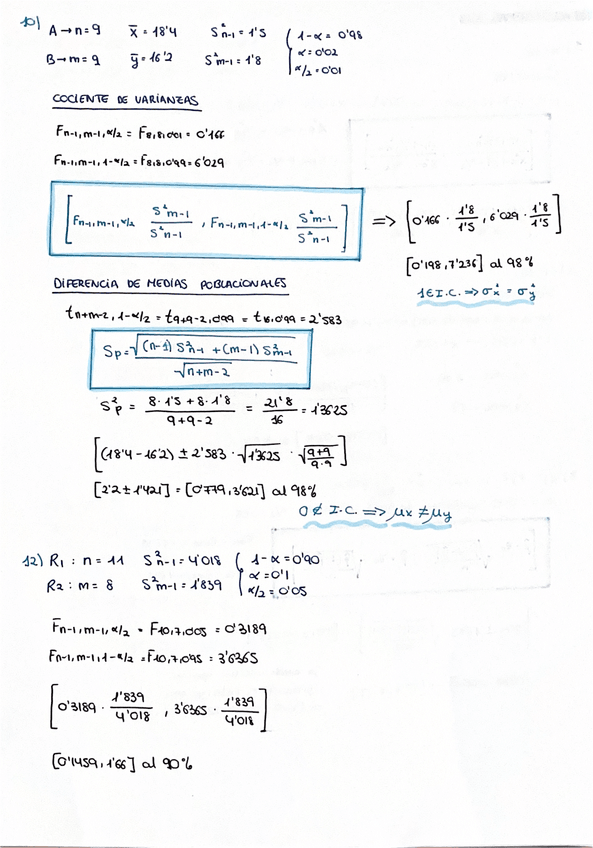 10) A → n = 9 x̄ = 18'4 S²n-1 = 1'5 { 1-α = 0'98
α = 0'02
B → m = 9 ȳ = 16'2 S²m-1 = 1'8 α/2 = 0'01
COCIENTE DE VARIANZAS
Fn-1, m-1, α/2 = F8,8,0'01 = 0'166
Fn-1, m-1, 1-α/2 = F8,8,0'99 = 6'029
[Fn-1, m-1, α/2 S²m-1/S²n-1 , Fn-1, m-1, 1-α/2 S²m-1/S²n-1] => [0'166 · 1'8/1'5 , 6'029 · 1'8/1'5]
[0'198, 7'236] al 98%
1 ∈ I.C. => σ²x = σ²y
DIFERENCIA DE MEDIAS POBLACIONALES
tn+m-2, 1-α/2 = t9+9-2, 0'99 = t16, 0'99 = 2'583
Sp = √((n-1) S²n-1 + (m-1) S²m-1) / √(n+m-2)
S²p = (8 · 1'5 + 8 · 1'8)/(9+9-2) = 21'8/16 = 1'3625
[(18'4 - 16'2) ± 2'583 · √1'3625 · √((9+9)/(9·9))]
[2'2 ± 1'421] = [0'779, 3'621] al 98%
0 ∉ I.C. => μx ≠ μy
12) R1 : n = 11 S²n-1 = 4'018 { 1-α = 0'90
α = 0'1
R2 : m = 8 S²m-1 = 1'839 α/2 = 0'05
Fn-1, m-1, α/2 = F10,7,0'05 = 0'3189
Fn-1, m-1, 1-α/2 = F10,7,0'95 = 3'6365
[0'3189 · 1'839/4'018 , 3'6365 · 1'839/4'018]
[0'1459, 1'66] al 90%